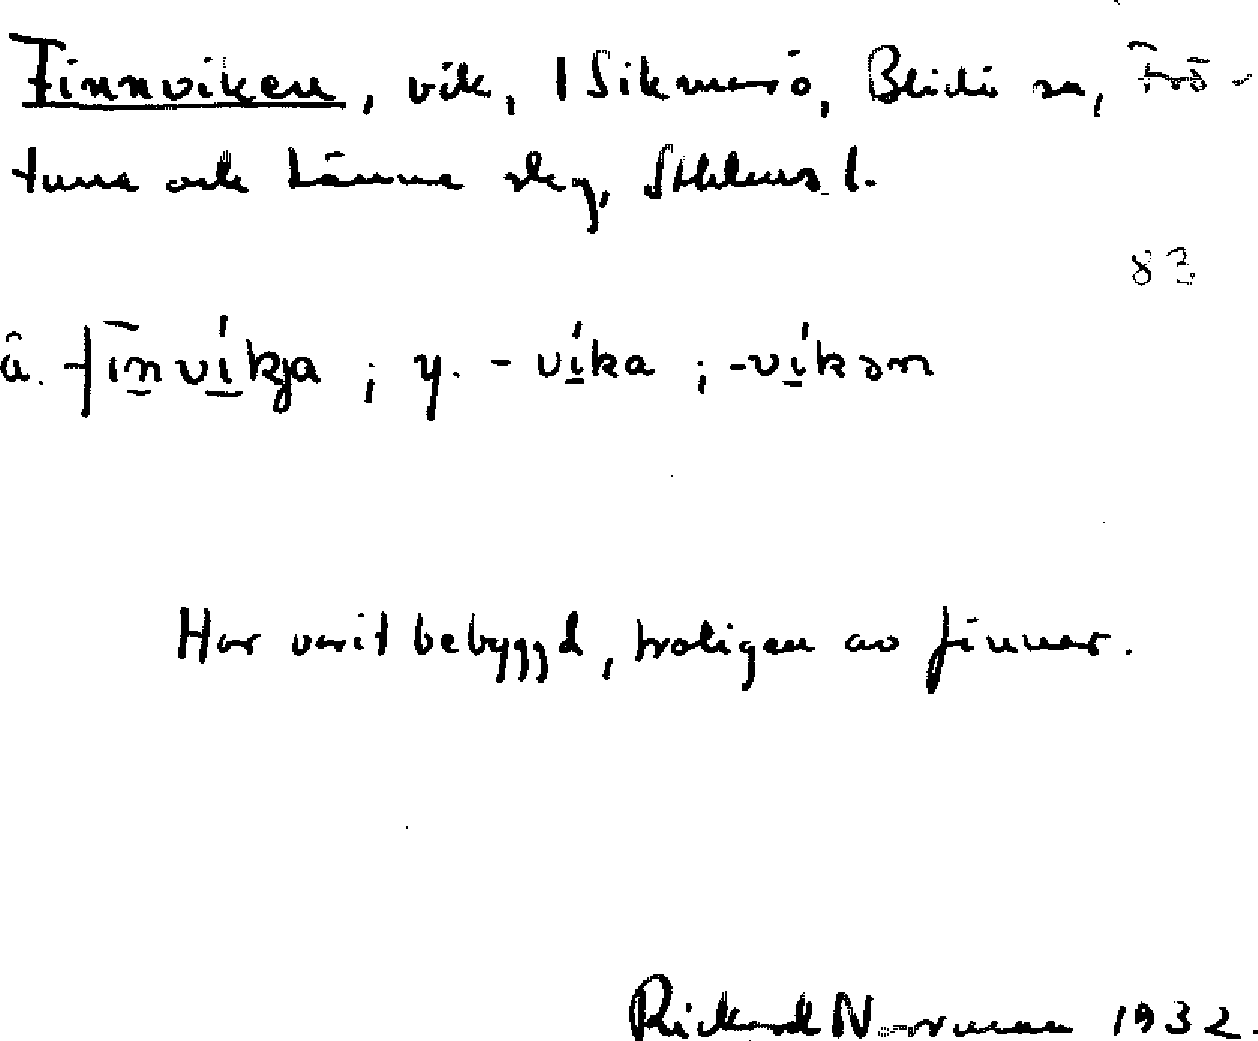 Finnviken, vik, 1 Sikmarö, Blidö sn, Frö-
tuna ock Länna skg, Sthlms l.
83
ä. fīnvíkja ; y. -víka ; -víkən
Har varit bebyggd, troligen av finnar.
Rickard Norrman 1932.